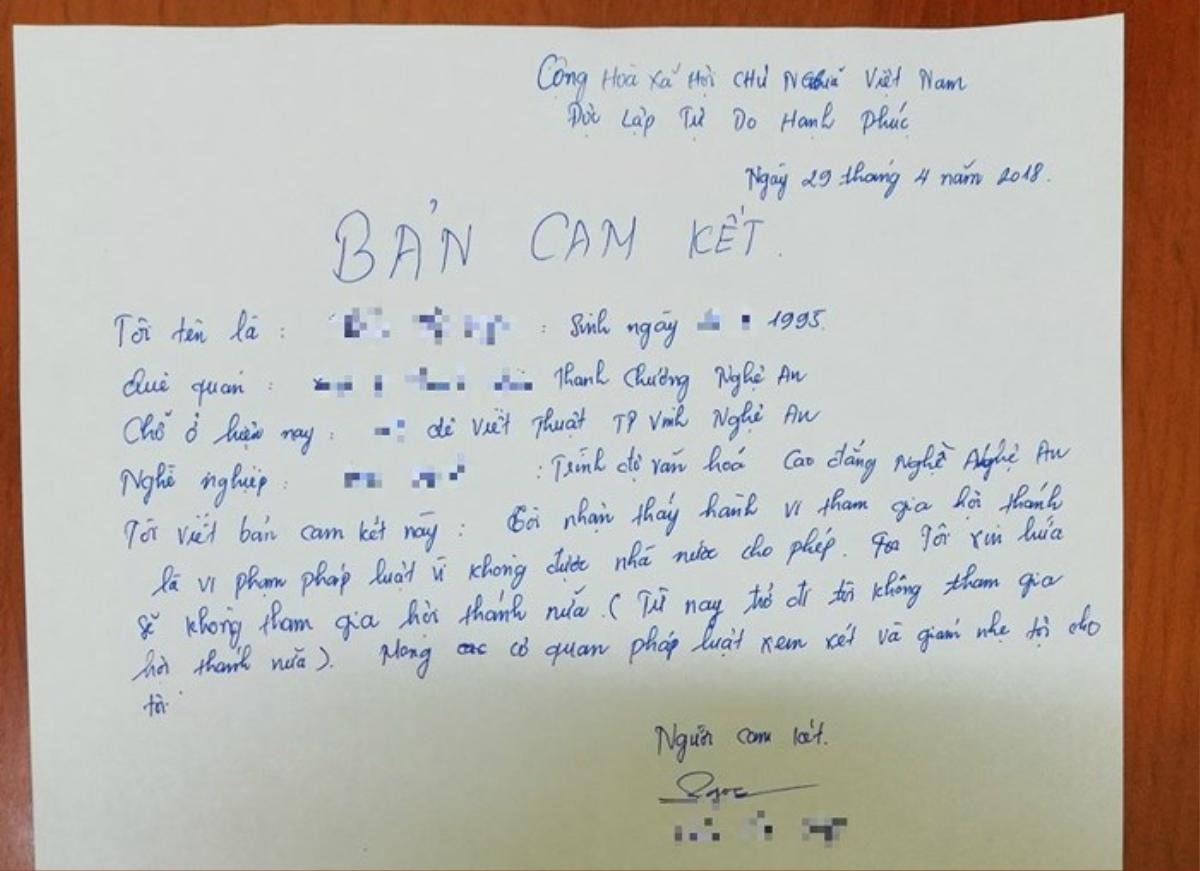 Cộng Hoà Xã Hội Chủ Nghĩa Việt Nam
Độc Lập Tự Do Hạnh Phúc
Ngày 29 tháng 4 năm 2018.
BẢN CAM KẾT.
Tôi tên là : : Sinh ngày 1995.
Quê quán : Thanh Chương Nghệ An
Chỗ ở hiện nay : Lê Viết Thuật TP Vinh Nghệ An
Nghề nghiệp : : Trình độ văn hoá Cao đẳng Nghề Nghệ An
Tôi viết bản cam kết này : Tôi nhận thấy hành vi tham gia hội thánh
là vi phạm pháp luật vì không được nhà nước cho phép. Tôi xin hứa
sẽ không tham gia hội thánh nữa. ( Từ nay trở đi tôi không tham gia
hội thánh nữa ). Mong cơ quan pháp luật xem xét và giảm nhẹ tội cho
tôi
Người cam kết.
Ngọc